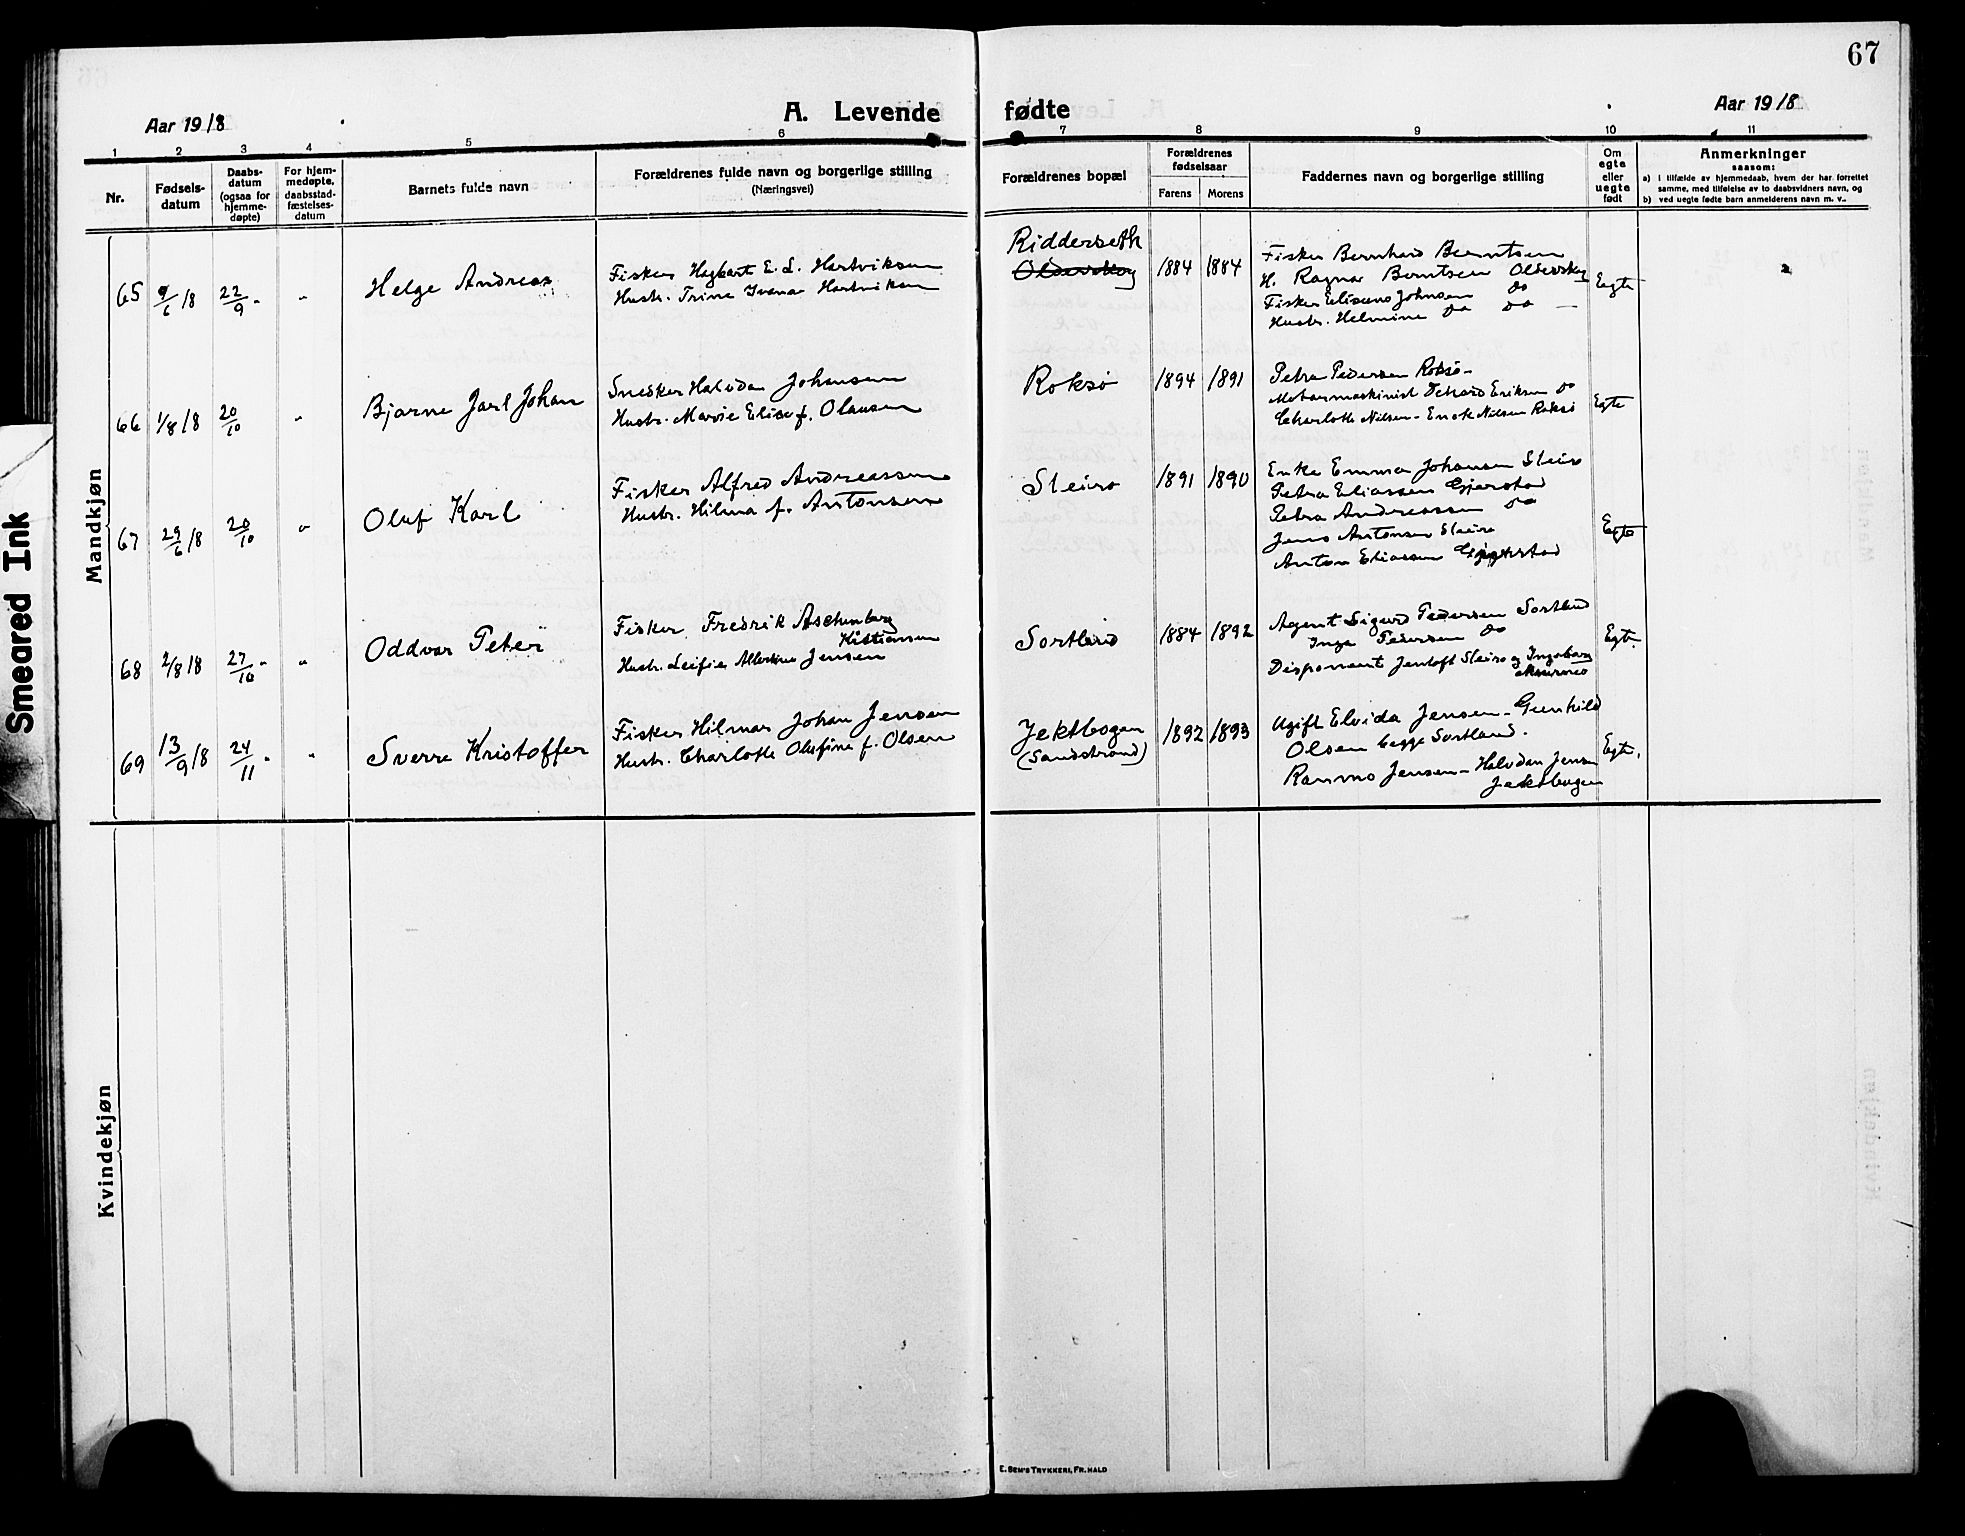 67
Aar 1918
A. Levende fødte
Aar 1918
1 2 3 4 5 6 7 8 9 10 11
Nr.
Fødsels-
datum
Daabs-
datum
(ogsaa for
hjemme-
døpte)
For hjem-
medøpte,
daabsstad-
fæstelses-
datum
Barnets fulde navn
Forældrenes fulde navn og borgerlige stilling
(Næringsvei)
Forældrenes bopæl
Forældrenes
fødselsaar
Farens Morens
Faddernes navn og borgerlige stilling
Om
egte
eller
uegte
født
Anmerkninger
saasom:
a) i tilfælde av hjemmedaab, hvem der har forrettet
samme, med tilføielse av to daabsvidners navn, og
b) ved uegte fødte barn anmelderens navn m. v..
Mandkjøn
65 9/6 18 22/9 - "
Helge Andreas
Fisker Hagbart E. L. Hartviksen
Hustr. Trine Ivana Hartviksen
Ridderseth
Oldervskog
1884 1884
Fisker Bernhard Berntsen
H. Ragna Berntsen Oldervskog
Fisker Eliseus Johnsen do
Hustr. Helmine do do —
Egte
66 1/8 18 20/10 "
Bjarne Jarl Johan
Snedker Halvdan Johansen
Hustr. Marie Elise f. Olausen
Roksö
1894 1891
Petra Pedersen Roksö-
Motormaskinist Edvard Eriksen do
Charlotte Nilsen - Enok Nilsen Roksö
Egte
67 29/6 18 20/10 "
Oluf Karl
Fisker Alfred Andreassen
Hustr. Hilma f. Antonsen
Sleiro
1891 1890
Enke Emma Johansen Sleiro
Petra Eliassen Gjerstad
Petra Andreassen do
Jens Antonsen Sleiro
Anton Eliassen Gjerstad
Egte
68 2/8 18 27/10 - "
Oddvar Peter
Fisker Fredrik Aschenberg
Kristiansen
Hustr. Leifie Albertine Jensen
Sortland
1884 1892
Agent Sigurd Pedersen Sortland
Inga Pedersen do
Disponent Jentoft Sleiro og Ingeborg
Egte.
69 13/9 18 24/11 - "
Sverre Kristoffer
Fisker Hilmar Johan Jensen
Hustr. Charlotte Olufine f. Olsen
Jektbogen
(Sandstrand)
1892 1893
Ugift Elvida Jensen - Gunhild
Olsen begge Sortland.
Ranmo Jensen - Halvdan Jensen
Jektbogen
Egte.
Kvindekjøn
Smeared Ink
E. SEM'S TRYKKERI, FR. HALD